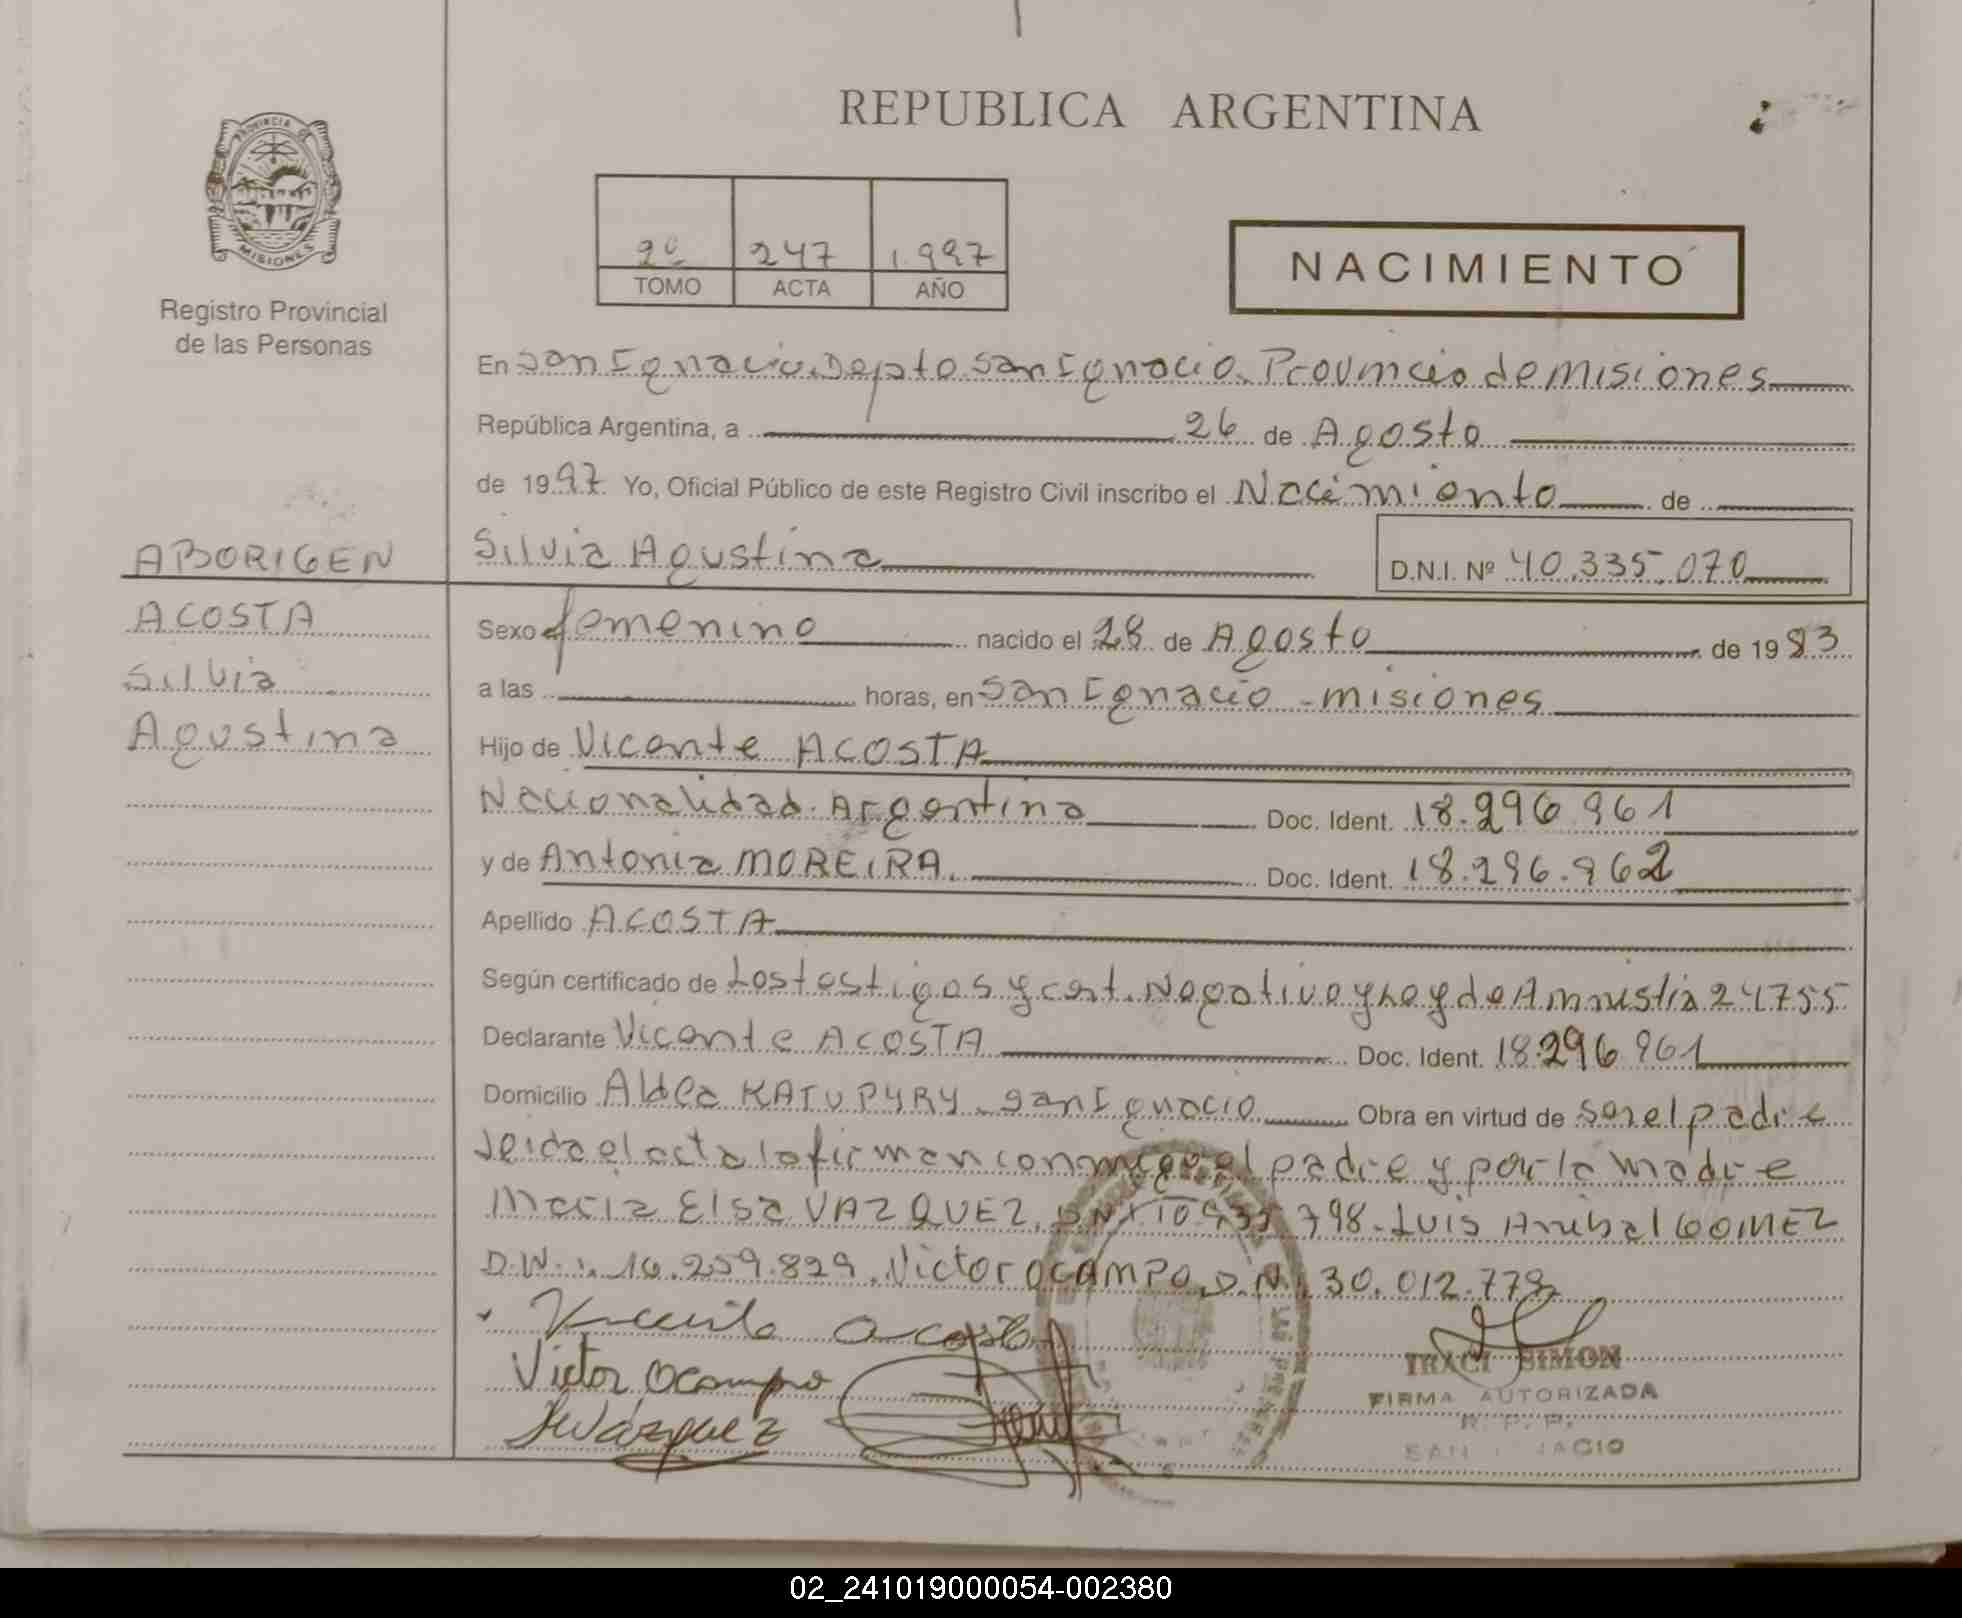 REPUBLICA ARGENTINA
PROVINCIA DE
MISIONES
Registro Provincial
de las Personas
2º 247 1.997
TOMO ACTA AÑO
NACIMIENTO
En San Ignacio. Depto San Ignacio. Provincia de Misiones
República Argentina, a 26 de Agosto
de 1997 Yo, Oficial Público de este Registro Civil inscribo el Nacimiento de
Silvia Agustina D.N.I. Nº 40.335.070
ABORIGEN
ACOSTA
Silvia
Agustina
Sexo femenino nacido el 28 de Agosto de 1983
a las horas, en San Ignacio - misiones
Hijo de Vicente ACOSTA
Nacionalidad. Argentina Doc. Ident. 18.296.961
y de Antonia MOREIRA. Doc. Ident. 18.296.962
Apellido ACOSTA
Según certificado de Los testigos y cert. Negativo y Ley de Amnistia 24755
Declarante Vicente ACOSTA Doc. Ident. 18.296.961
Domicilio Aldea KATUPYRY. San Ignacio Obra en virtud de ser el padre
leida el acta lo firman conmigo el padre y por la madre
Maria Elsa VAZQUEZ. DNI 10. 798. Luis Anibal GOMEZ
D.N.I. 16.259.829. Victor OCAMPO. D.N.I 30.012.778
Vicente Acosta
Victor Ocampo
Vázquez
TRACI SIMON
FIRMA AUTORIZADA
R. P. P.
SAN IGNACIO
02_241019000054-002380